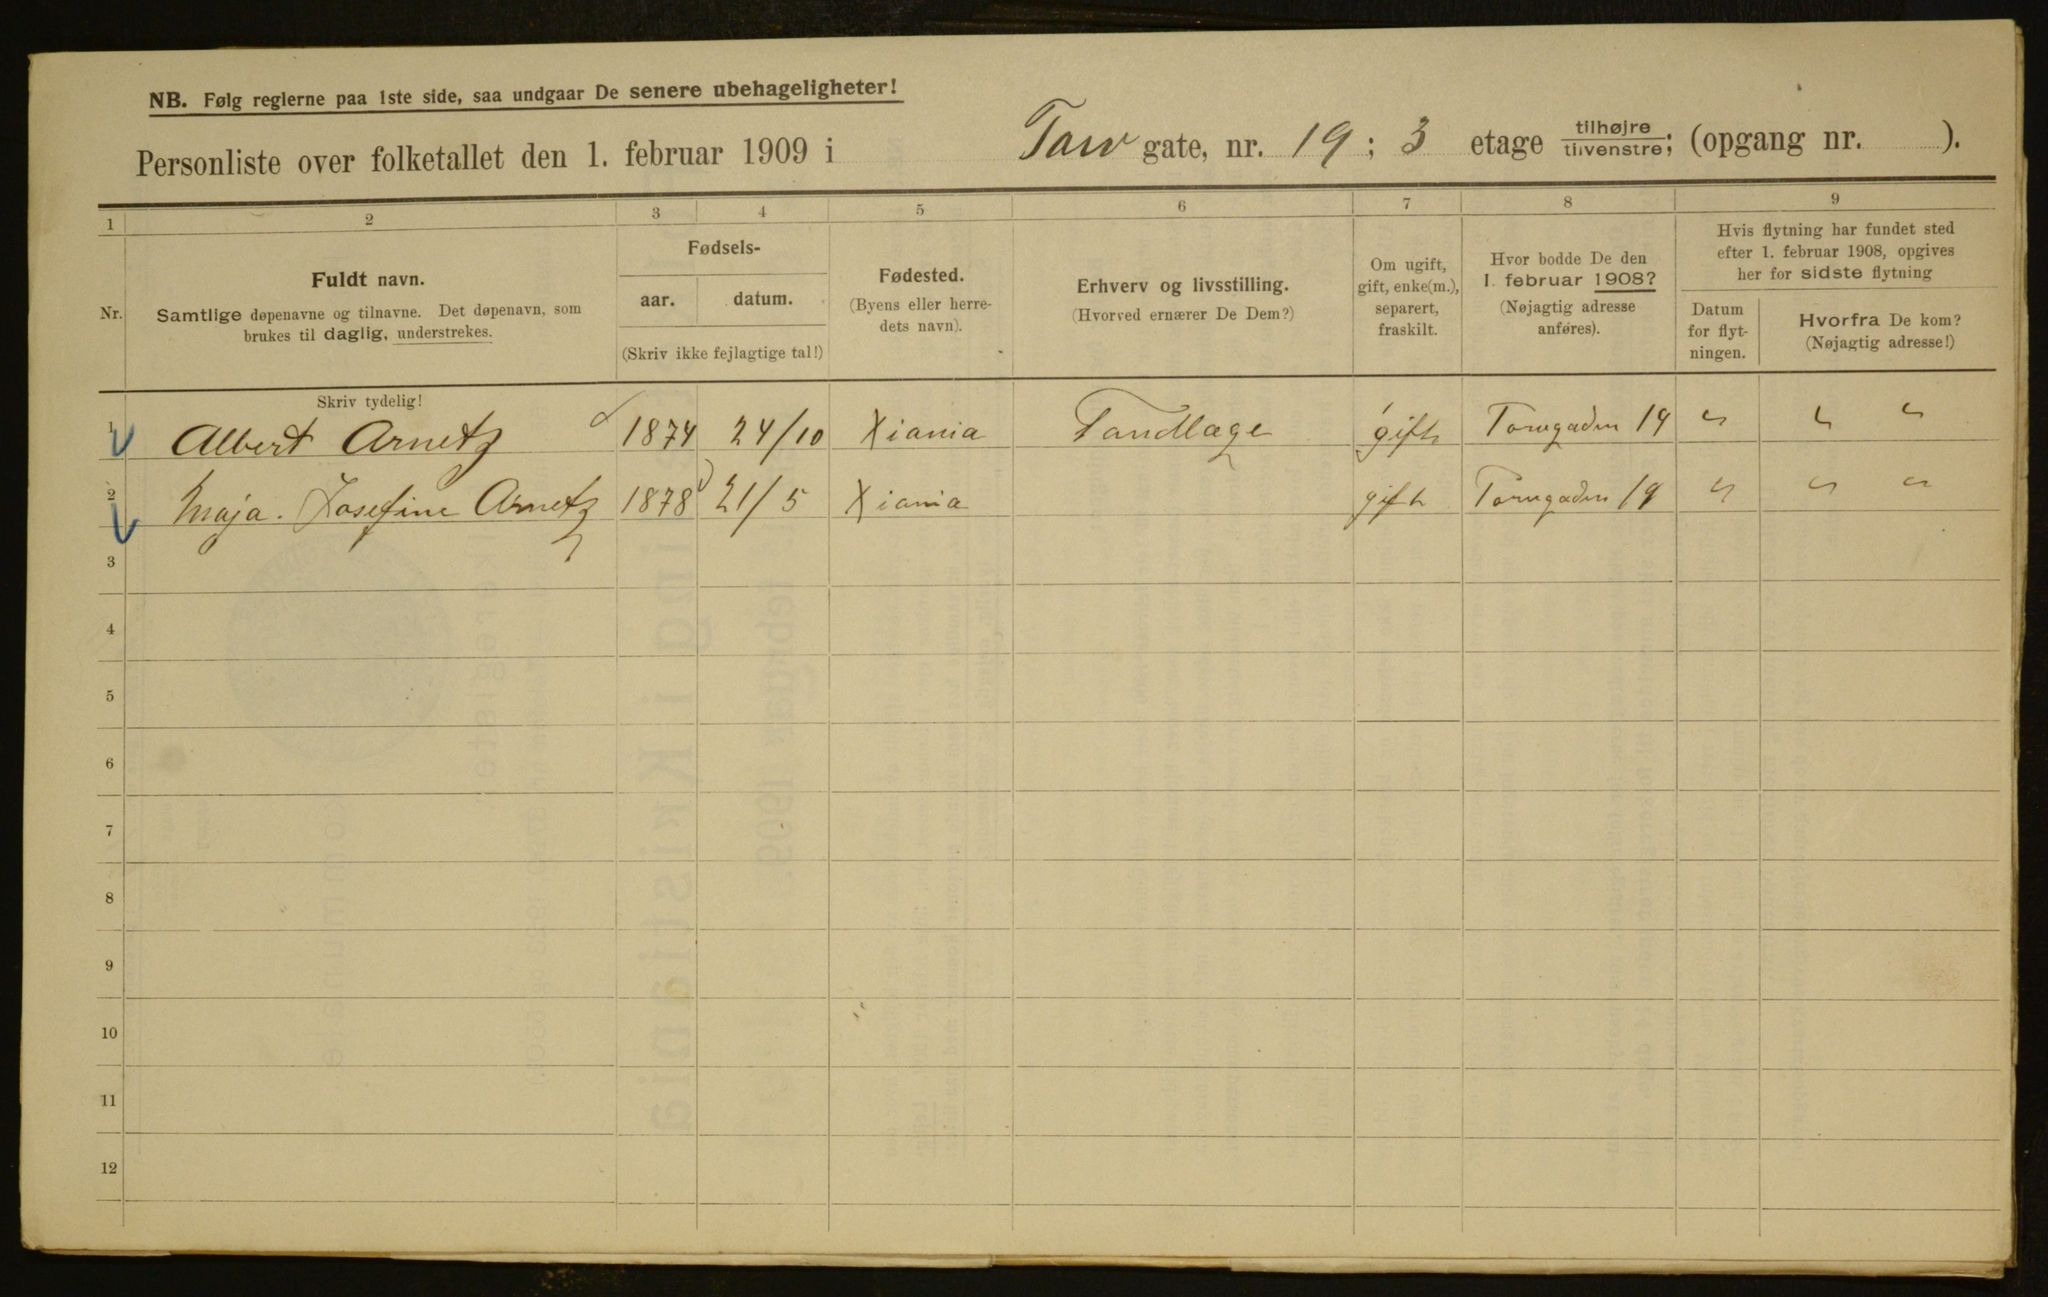 NB. Følg reglerne paa 1ste side, saa undgaar De senere ubehageligheter!
Personliste over folketallet den 1. februar 1909 i Torv gate, nr. 19; 3 etage tilhøjre tilvenstre; (opgang nr. ).
1 2 3 4 5 6 7 8 9
Nr.
Fuldt navn.
Samtlige døpenavne og tilnavne. Det døpenavn, som
brukes til daglig, understrekes.
Fødsels-
aar. datum.
(Skriv ikke fejlagtige tal!)
Fødested.
(Byens eller herre-
dets navn).
Erhverv og livsstilling.
(Hvorved ernærer De Dem?)
Om ugift,
gift, enke(m.),
separert,
fraskilt.
Hvor bodde De den
1. februar 1908?
(Nøjagtig adresse
anføres).
Hvis flytning har fundet sted
efter 1. februar 1908, opgives
her for sidste flytning
Datum
for flyt-
ningen.
Hvorfra De kom?
(Nøjagtig adresse!)
Skriv tydelig!
1 Albert Arnetz 1874 24/10 Xiania Tandlæge gift Torvgaden 19 " " "
2 Maja. Josefine Arnetz 1878 21/5 Xiania gift Torvgaden 19 " " "
3
4
5
6
7
8
9
10
11
12